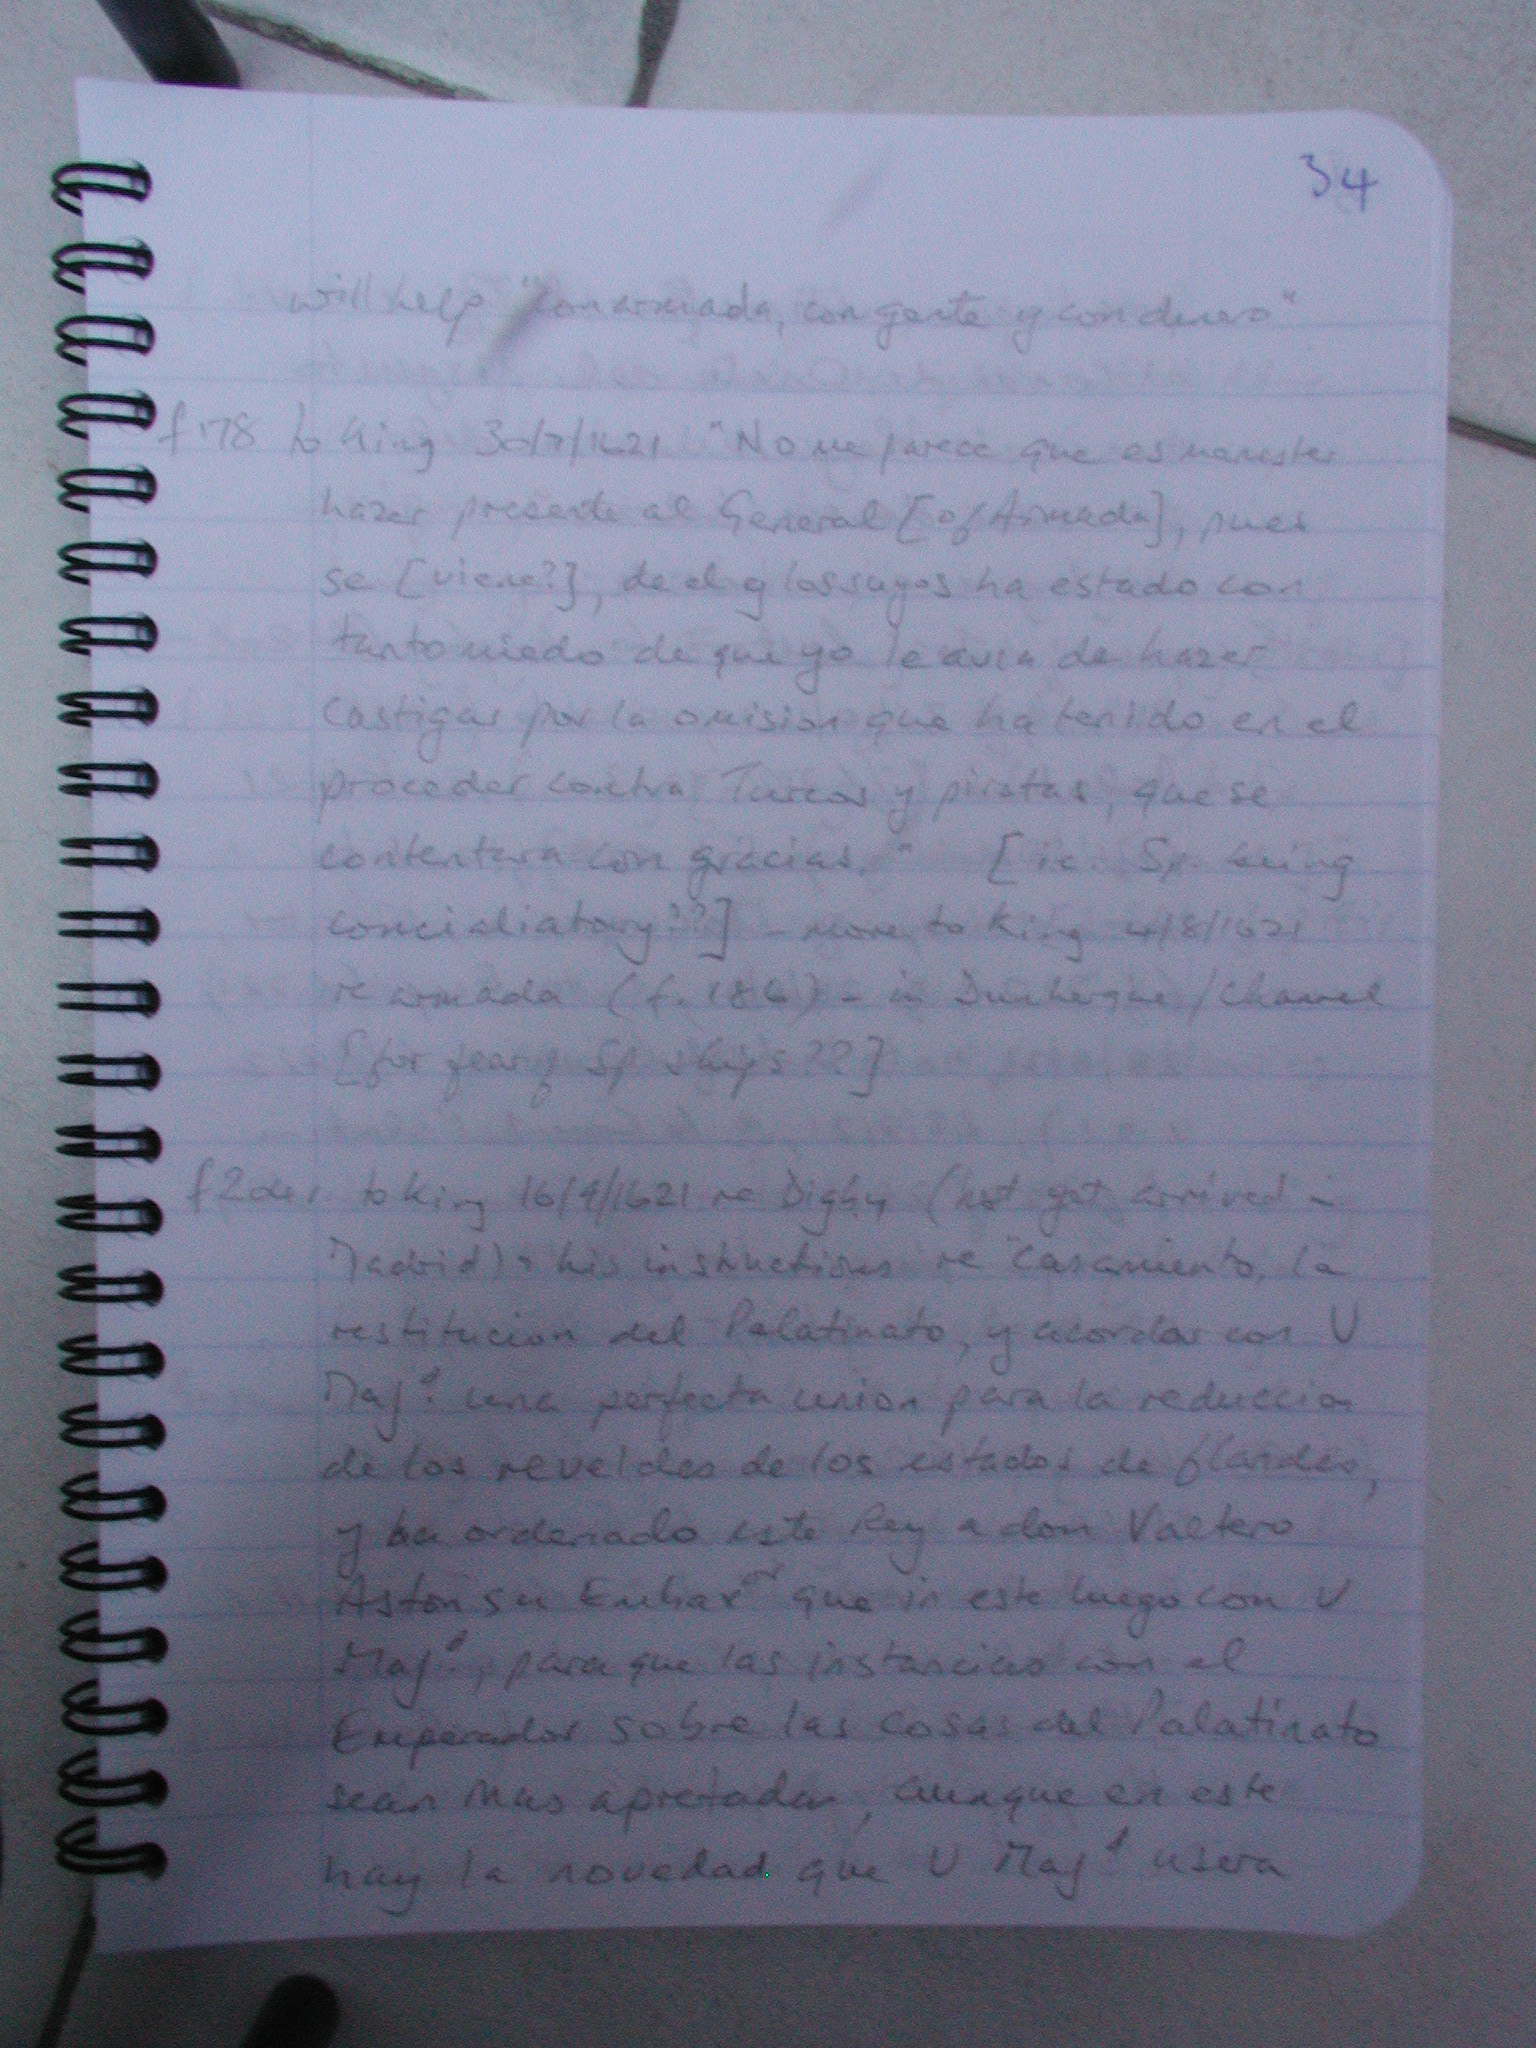 34
will help "con armada, con gente y con dinero"
f178 to King 30/7/1621 "No me parece que es menester
hazer presente al General [of Armada], pues
se [viene?], de el y los suyos ha estado con
tanto miedo de que yo le avia de hazer
castigar por la omision que ha tenido en el
proceder contra Turcos y piratas, que se
contentara con gracias." [ie. Sp. being
concialiatory??] - more to King 4/8/1621
re armada (f. 186) - in Dunkerque/Channel
[for fear of Sp ships??]
to King 16/9/1621 re Digby (not yet arrived in
Madrid) + his instructions re "Casamiento, la
restitucion del Palatinato, y acordar con V
Maj.d una perfecta union para la reduccion
de los reveldes de los estados de flandes,
y ha ordenado este Rey a don Valtero
Aston su Embaxor que in este luego con V
Maj.d, para que las instancias con el
Emperador sobre las cosas del Palatinato
sean mas apretadas, aunque en este
hay la novedad que V Maj.d usera